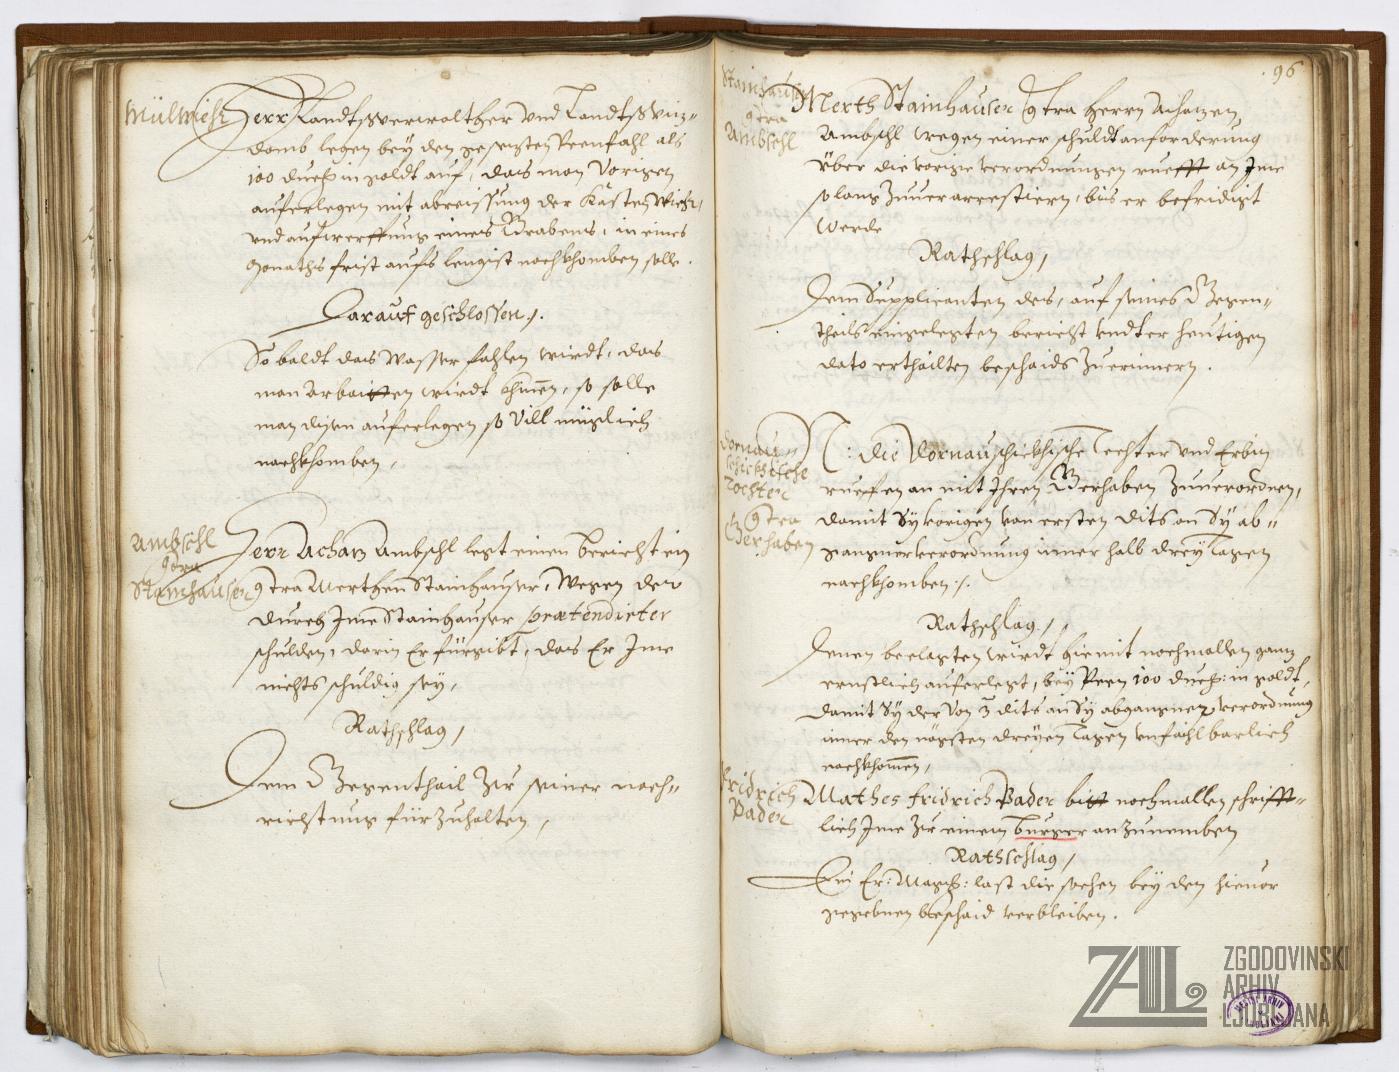 Mülwiehr
Herr Landtsverwalther und Landtsviz-
domb legen bey den gesezten Peenfahl als
100 duc: in goldt auf, das man Vorigen
auferlegen mit abreissung der Kästen, Wiehr,
und aufwerffung eines Grabens, in eines
Monaths frist aufs lengist nachkhomben solle.
Darauf geschlossen.
So baldt das Wasser fahlen wirdt, das
man Arbaitten wirdt khinen, so solle
man disen auferlegen so Vill müglich
nachkhomben,
Ambschl
9tra
Stainhauser
Herr Achaz Ambschl legt einen bericht ein
9tra Merthen Stainhauser, Wegen der
durch Ime Stainhauser prætendirter
schulden, darin Er fürgibt, das Er Ime
nichts schuldig sey,
Rathschlag,
Dem Gegenthail Zu seiner nach-
richtung fürzuhalten,
96
Stainhauser
9tra
Ambschl
Merth Stainhauser 9tra Herrn Achazen
Ambschl wegen einer schuldtanforderung
Über die vorige verordnungen ruefft an Ime
so lang Zuuerarrestiern, bis er befridigt
Werde
Rathschlag,
Dem Supplicanten des, auf seines Gegen-
theils eingelegten bericht undter heutigen
dato erthailten beschaids Zuerinnern.
Dornau-
schickhische
Tochter
9tra
Gerhaben
N: die Dornauschickhische Techter und Erbin
rueffen an mit Ihren Gerhaben Zuuerordnen,
damit Sy vorigen von ersten dits an Sy ab-
gangner verordnung inner halb drey Tagen
nachkhomben.
Rathschlag,
Denen beclagten wirdt hiemit nochmallen ganz
ernstlich auferlegt, bey Peen 100 duc: in goldt,
damit Sy der Von 3 dits an Sy abgangnen verordnung
inner den nägsten dreyen Tagen unfahlbarlich
nachkhomen,
Fridrich
Pader
Mathes Fridrich Pader bitt nochmallen schrifft-
lich Ime Zu einem burger anzunemben
Rathschlag,
Ein Er: Mag: last die sachen bey den hieuor
gegebnen beschaid verbleiben.
ZAL
ZGODOVINSKI
ARHIV
LJUBLJANA